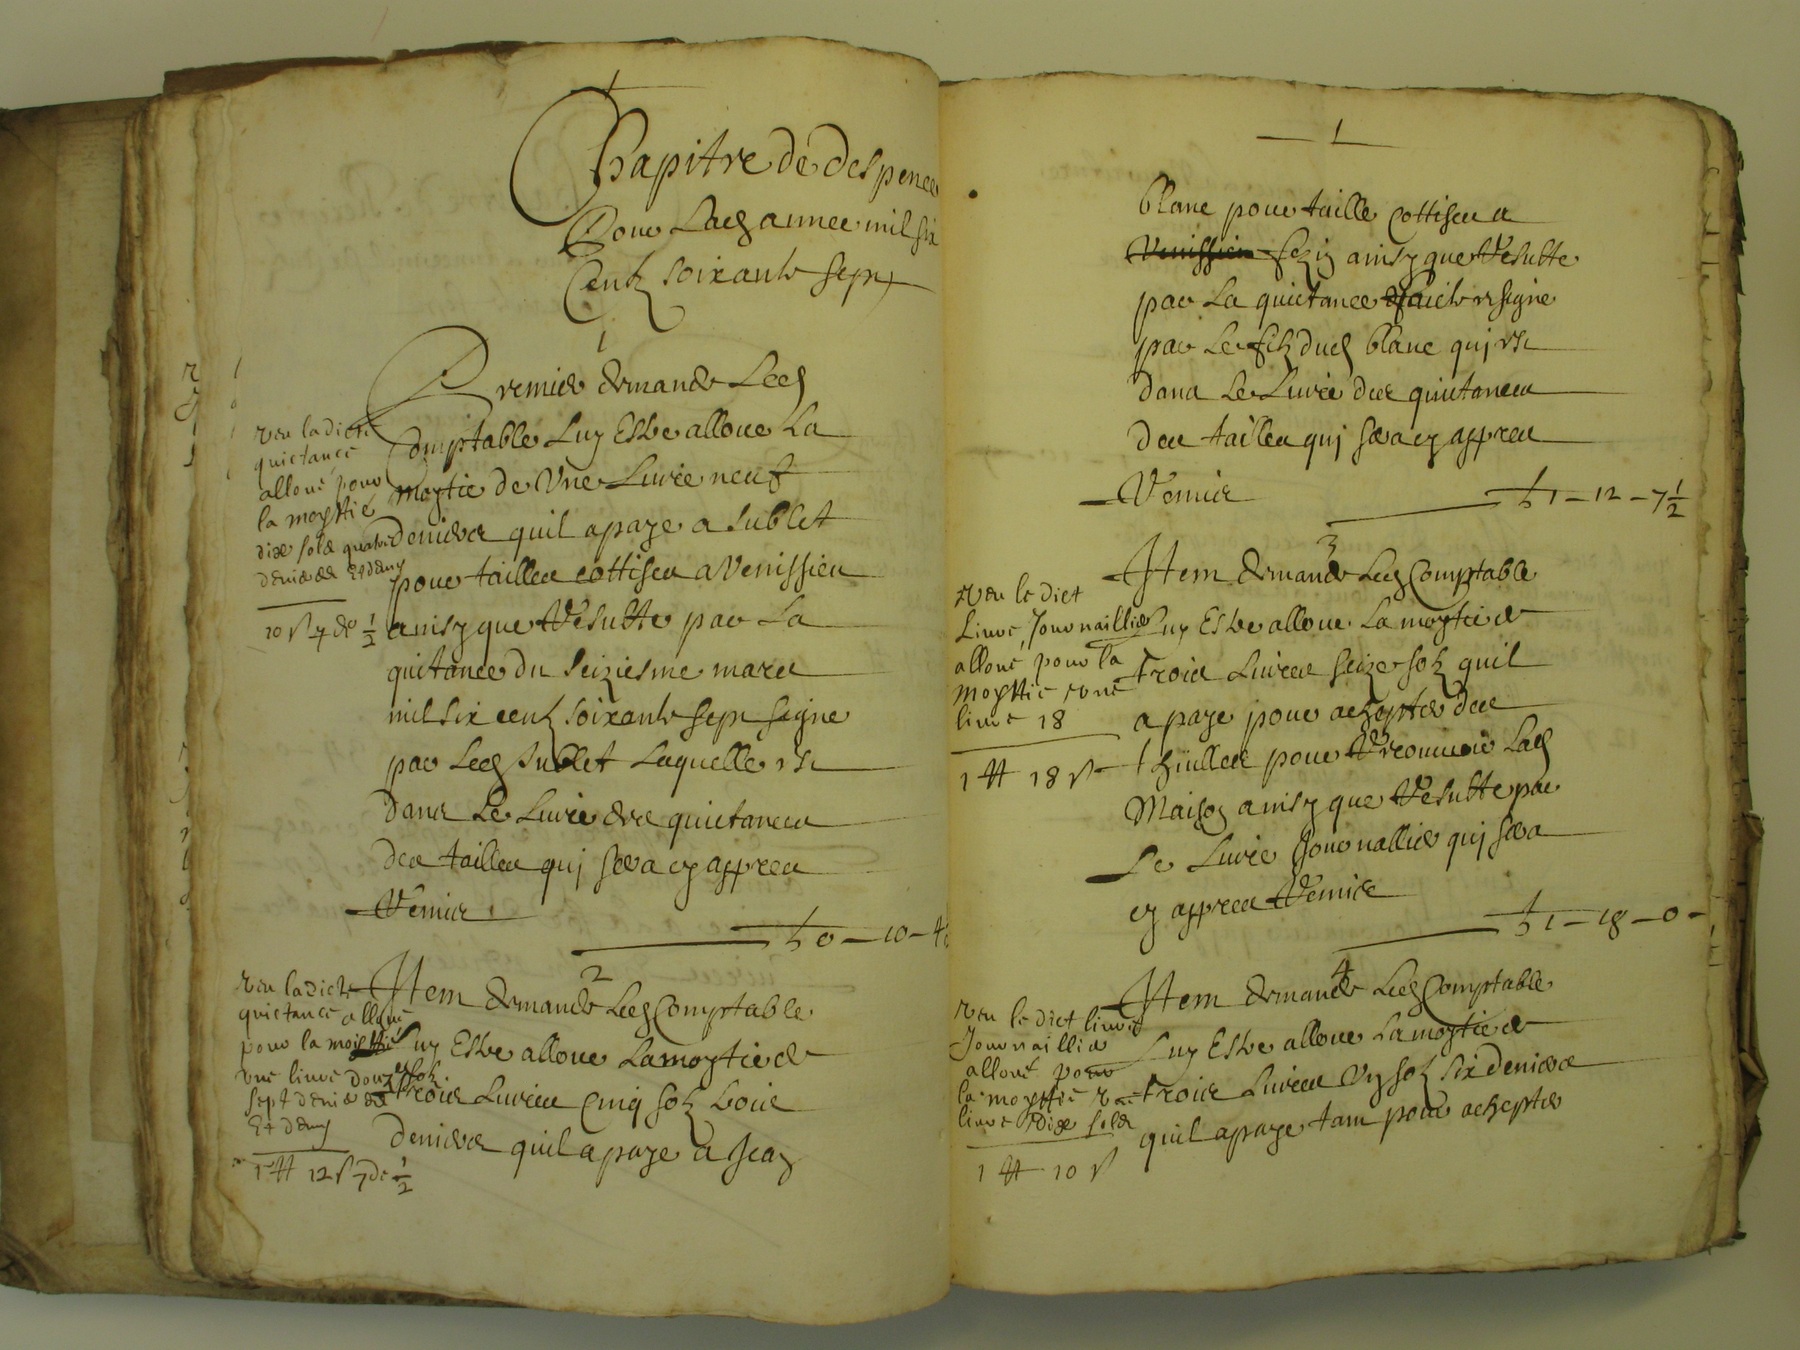 Chapitre de despence
Pour Lad annee mil six
Centz soixante sept
1
Premier demande Led
Comptable Luy Estre alloue La
moytie de Une Livre neuf
deniers quil a paye a Sublet
pour tailles cottisees a Venissieu
ainsy que Resulte par La
quitance du Seiziesme mars
mil six centz soixante sept signe
par Led Sublet Laquelle est
dans Le Livre des quictances
des tailles quj sera cy appres
Remis
£ 0 – 10 – 4
veu ladicte
quictance
alloué pour
la moyttié
dix solz quatre
deniers et demy
10 s 7 de 1/2
2
Item demande Led Comptable
Luy Estre alloue La moytie de
trois Livres Cinq solz trois
deniers quil a paye a Jean
veu ladicte
quictance alloué
pour la moittié
une livre douze solz
sept deniers
Et demy
1 ₶ 12 s 7 de 1/2
1
blanc pour taille cottisee a
Venissieu Fezin ainsy que Resulte
par La quictance faicte et signe
par Le filz dud blanc quj est
dans Le Livre des quictances
des tailles quj sera cy appres
Remis
£ 1 – 12 – 7 1/2
3
Item demande Led Comptable
Luy Estre alloue La moytie de
trois Livres seize solz quil
a paye pour achepter des
thuilles pour Recouvrir Lad
Maison ainsy que Resulte par
Le Livre Journallier quj sera
cy appres Remis
£ 1 – 18 – 0 –
veu le dict
Livre Journaillier
alloué pour la
moyttié une
livre 18
1 ₶ 18 s
4
Item demande Led Comptable
Luy Estre alloue La moytie de
trois Livres Un solz six deniers
quil a paye tant pour achepter
veu le dict livre
Journaillier
alloué pour
la moyttié
livre dix solz
1 ₶ 10 s